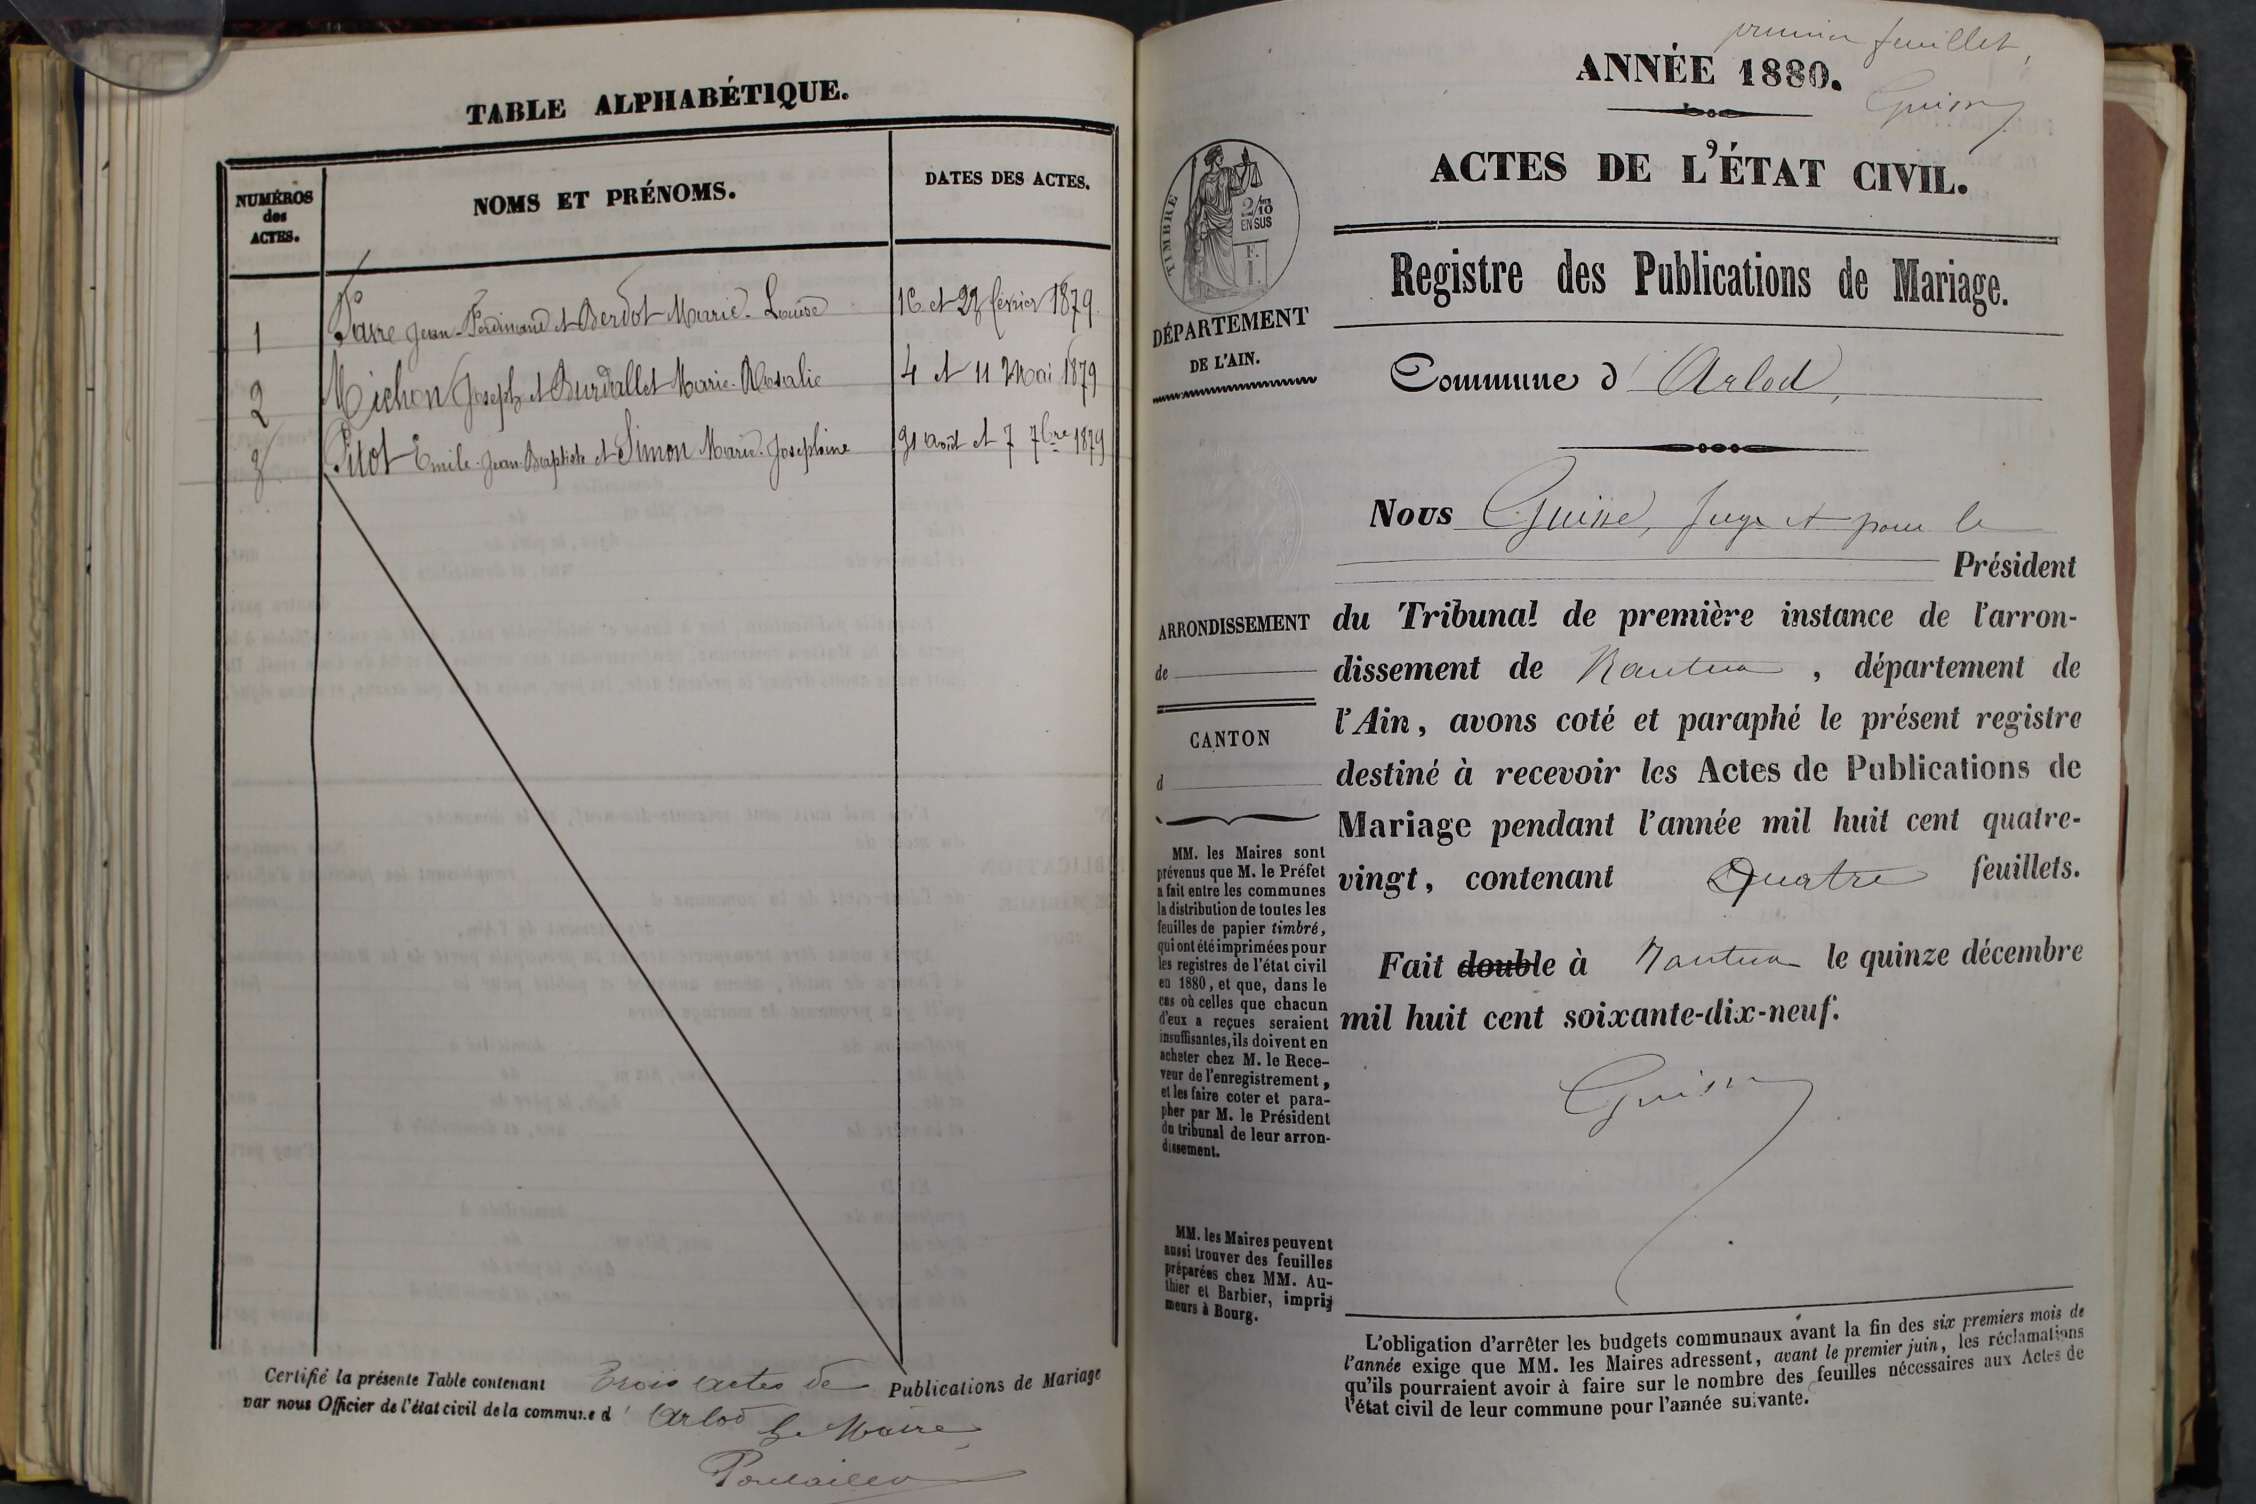 TABLE ALPHABÉTIQUE.
NUMÉROS
des
ACTES.
NOMS ET PRÉNOMS.
DATES DES ACTES.
1 Favre Jean-Ferdinand et Berdot Marie-Louise 16 et 23 février 1879.
2 Michon Joseph et Burdallet Marie-Rosalie 4 et 11 Mai 1879
3 Pitot Emile-Jean-Baptiste et Simon Marie-Josephine 31 août et 7 7bre 1879
Certifié la présente Table contenant Trois actes de Publications de Mariage
par nous Officier de l'état civil de la commune d'Arlod
Le Maire,
premier feuillet,
ANNÉE 1880.
ACTES DE L'ÉTAT CIVIL.
TIMBRE
2/10
EN SUS
DÉPARTEMENT
DE L'AIN.
Registre des Publications de Mariage.
Commune d'Arlod,
Nous Guisse, Juge et pour le
Président
du Tribunal de première instance de l'arron-
dissement de Nantua, département de
l'Ain, avons coté et paraphé le présent registre
destiné à recevoir les Actes de Publications de
Mariage pendant l'année mil huit cent quatre-
vingt, contenant Quatre feuillets.
Fait double à Nantua le quinze décembre
mil huit cent soixante-dix-neuf.
ARRONDISSEMENT
de
CANTON
d
MM. les Maires sont
prévenus que M. le Préfet
a fait entre les communes
la distribution de toutes les
feuilles de papier timbré,
qui ont été imprimées pour
les registres de l'état civil
en 1880, et que, dans le
cas où celles que chacun
d'eux a reçues seraient
insuffisantes, ils doivent en
acheter chez M. le Rece-
veur de l'enregistrement,
et les faire coter et para-
pher par M. le Président
du tribunal de leur arron-
dissement.
MM. les Maires peuvent
aussi trouver des feuilles
préparées chez MM. Au-
thier et Barbier, impri-
meurs à Bourg.
L'obligation d'arrêter les budgets communaux avant la fin des six premiers mois de
l'année exige que MM. les Maires adressent, avant le premier juin, les réclamations
qu'ils pourraient avoir à faire sur le nombre des feuilles nécessaires aux Actes de
l'état civil de leur commune pour l'année suivante.